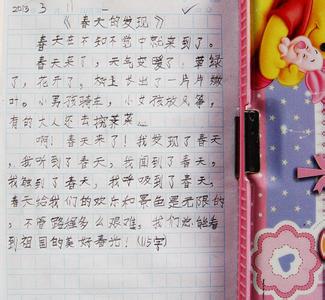 2013. 3
《春天的发现》
春天在不知不觉中就来到了。
春天来了，天气变暖了，草绿
了，花开了，树上长出了一片片嫩
叶。小男孩骑车，小女孩放风筝，
有的大人还去挖荠菜…
啊！春天来了！我发现了春天
，我听到了春天，我闻到了春天，
我触到了春天，我呼吸到了春天，
春天给我们的欢乐和景色是无限的
，不管路途多么艰难，我们总能看
到祖国的美好春光！(115字)